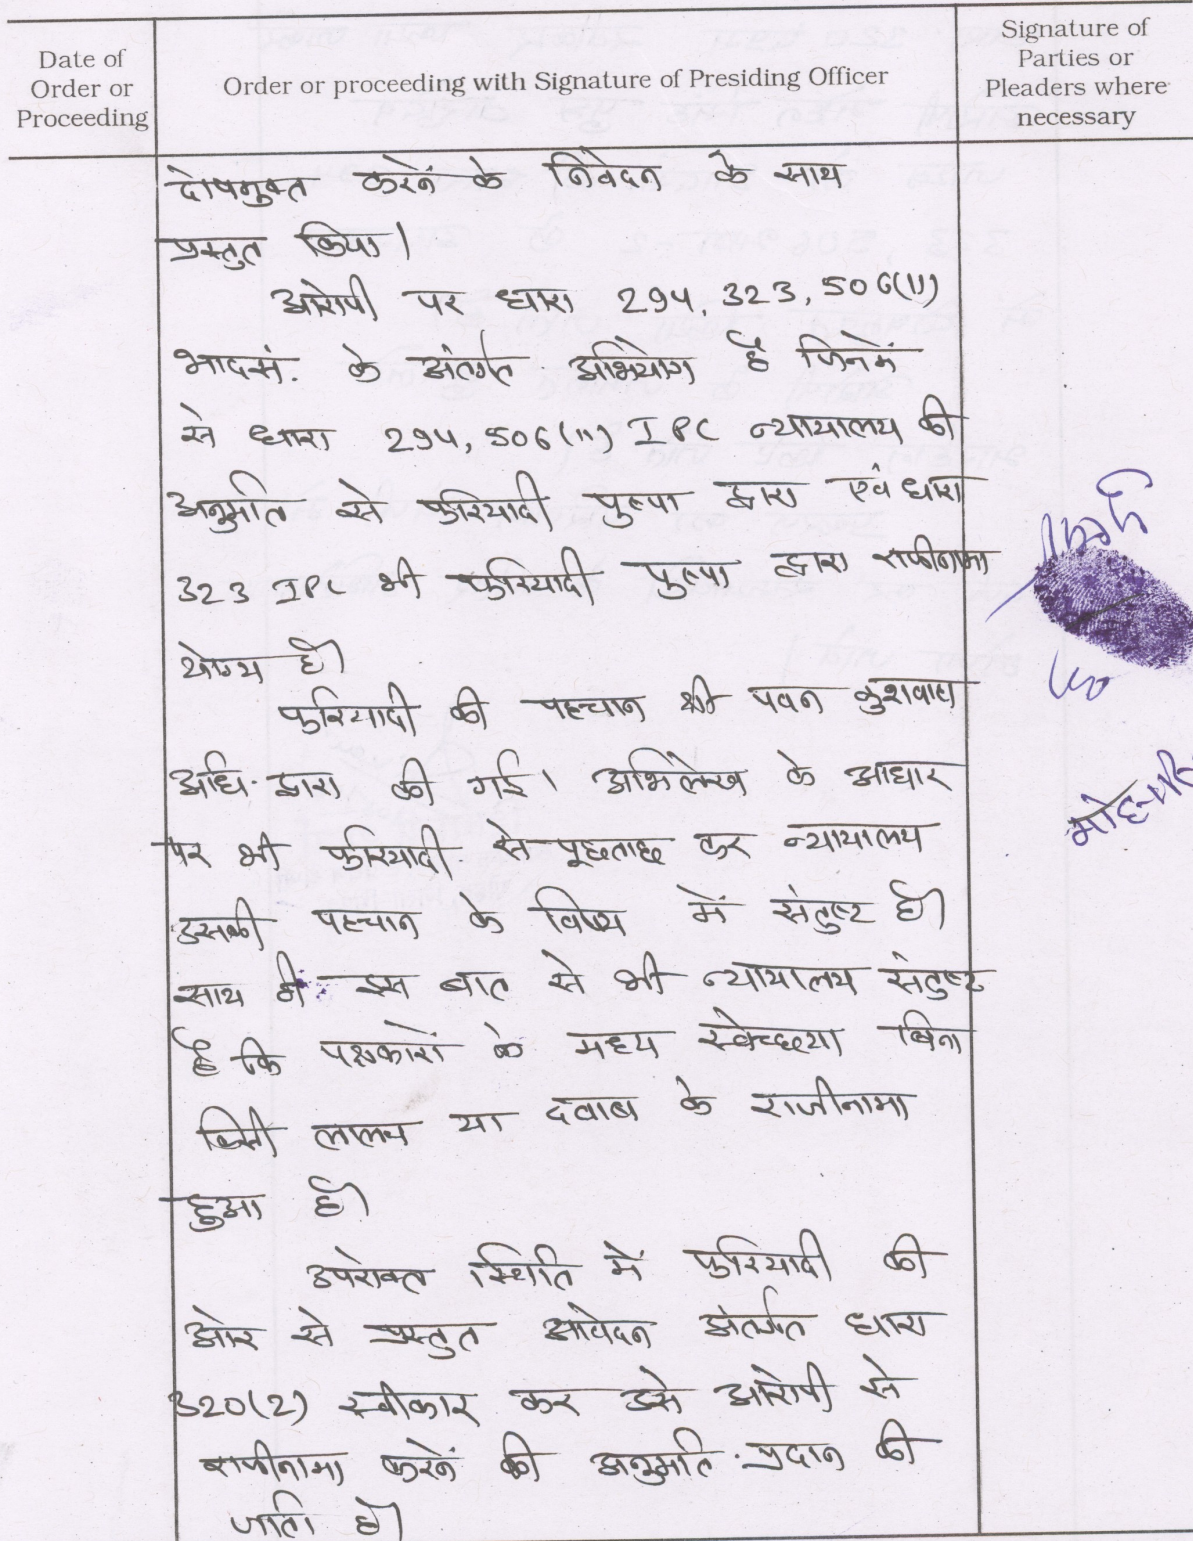 Date of
Order or
Proceeding
Order or proceeding with Signature of Presiding Officer
Signature of
Parties or
Pleaders where
necessary
दोषमुक्त करनें के निवेदन के साथ
प्रस्तुत किया।
आरोपी पर धारा 294, 323, 506(11)
भादसं. के अंतर्गत अभियोग है जिनमें
से धारा 294, 506(11) IPC न्यायालय की
अनुमति से फरियादी पुष्पा द्वारा एवं धारा
323 IPC भी फरियादी पुष्पा द्वारा राजीनामा
योग्य है।
फरियादी की पहचान श्री पवन कुशवाह
अधि. द्वारा की गई। अभिलेख के आधार
पर भी फरियादी से पूछताछ कर न्यायालय
उसकी पहचान के विषय में संतुष्ट है।
साथ ही इस बात से भी न्यायालय संतुष्ट
है कि पक्षकारों के मध्य स्वेच्छया बिना
किसी लालच या दवाब के राजीनामा
हुआ है।
उपरोक्त स्थिति में फरियादी की
ओर से प्रस्तुत आवेदन अंतर्गत धारा
320(2) स्वीकार कर उसे आरोपी से
राजीनामा करनें की अनुमति प्रदान की
जाती है।